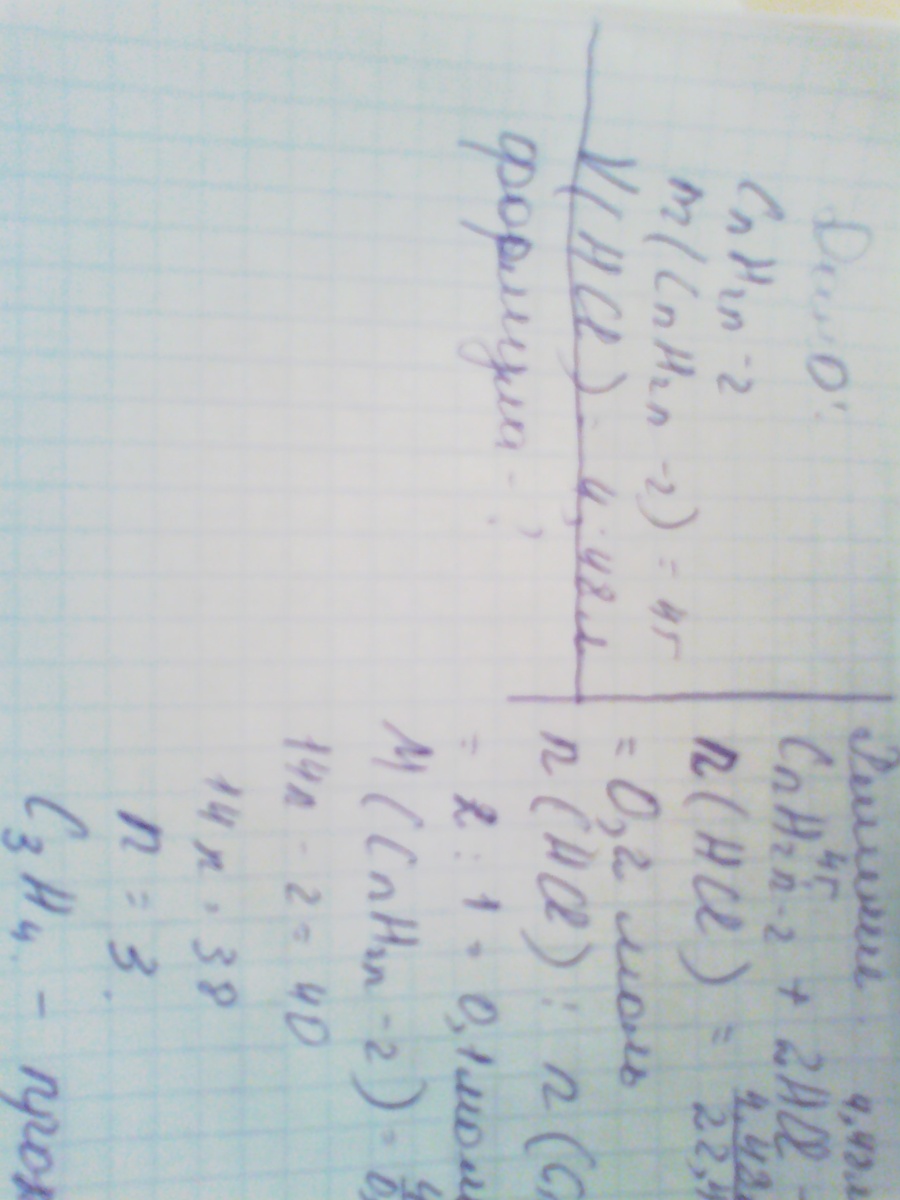 Дано:
CnH2n-2
m(CnH2n-2) = 4г
V(HCl) = 4,48 л
формула - ?
Решение
4г 4,48л
CnH2n-2 + 2HCl
n(HCl) = 4,48 / 22,4
= 0,2 моль
n(HCl) : n(C
= 2 : 1 = 0,1 мол
M(CnH2n-2) = 4 / 0,
14n - 2 = 40
14n = 38
n = 3
C3H4 - проп